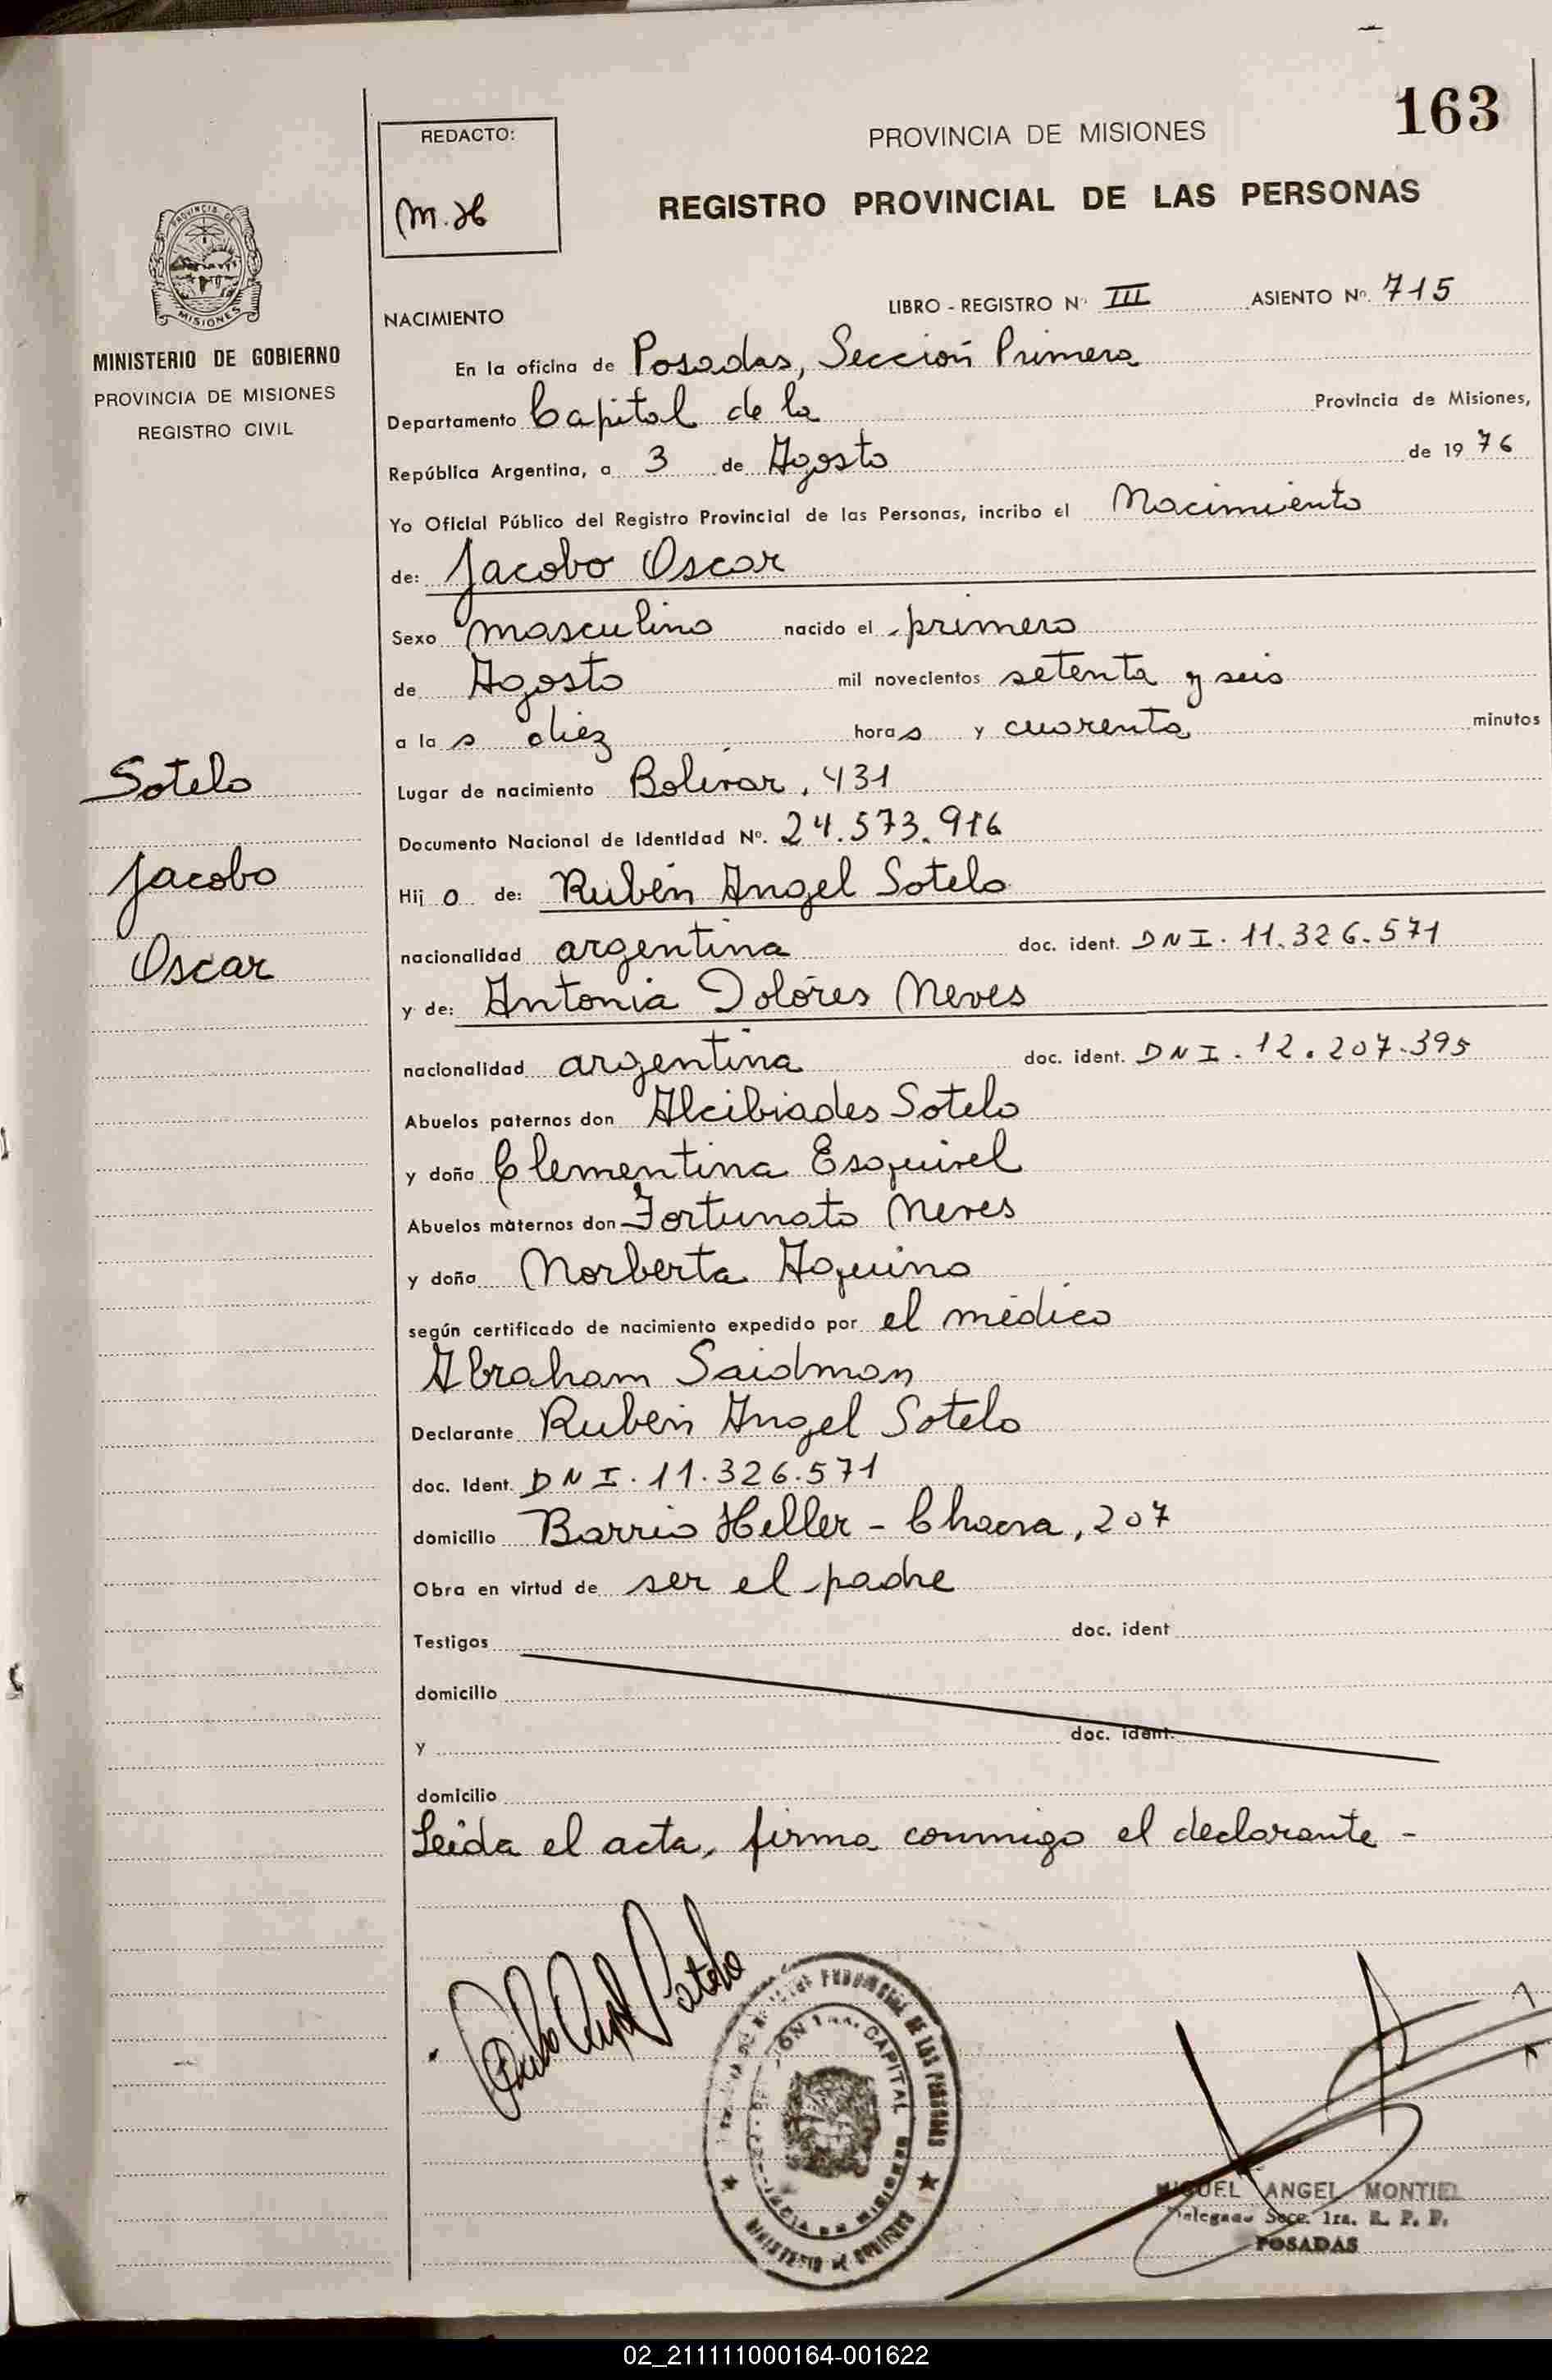 163
REDACTO:
M.H
PROVINCIA DE MISIONES
REGISTRO PROVINCIAL DE LAS PERSONAS
PROVINCIA DE
MISIONES
MINISTERIO DE GOBIERNO
PROVINCIA DE MISIONES
REGISTRO CIVIL
NACIMIENTO LIBRO - REGISTRO Nº III ASIENTO Nº 715
En la oficina de Posadas, Sección Primera
Departamento Capital de la Provincia de Misiones,
República Argentina, a 3 de Agosto de 1976
Yo Oficial Público del Registro Provincial de las Personas, incribo el Nacimiento
de: Jacobo Oscar
Sexo masculino nacido el primero
de Agosto mil novecientos setenta y seis
a las diez horas y cuarenta minutos
Sotelo
Jacobo
Oscar
Lugar de nacimiento Bolívar, 431
Documento Nacional de Identidad Nº. 24.573.916
Hijo de: Rubén Angel Sotelo
nacionalidad argentina doc. ident. DNI. 11.326.571
y de: Antonia Dolores Neves
nacionalidad argentina doc. ident. DNI. 12.207.395
Abuelos paternos don Alcibiades Sotelo
y doña Clementina Esquivel
Abuelos maternos don Fortunato Neves
y doña Norberta Aquino
según certificado de nacimiento expedido por el médico
Abraham Saidman
Declarante Rubén Angel Sotelo
doc. Ident. DNI. 11.326.571
domicilio Barrio Heller - Chacra, 207
Obra en virtud de ser el padre
Testigos doc. ident
domicilio
y doc. ident.
domicilio
Leída el acta, firma conmigo el declarante -
Sotelo
PROVINCIAL DE LAS PERSONAS
CAPITAL
MINISTERIO DE GOBIERNO
MIGUEL ANGEL MONTIEL
Delegado Secc. 1ra. R. P. P.
POSADAS
02_211111000164-001622